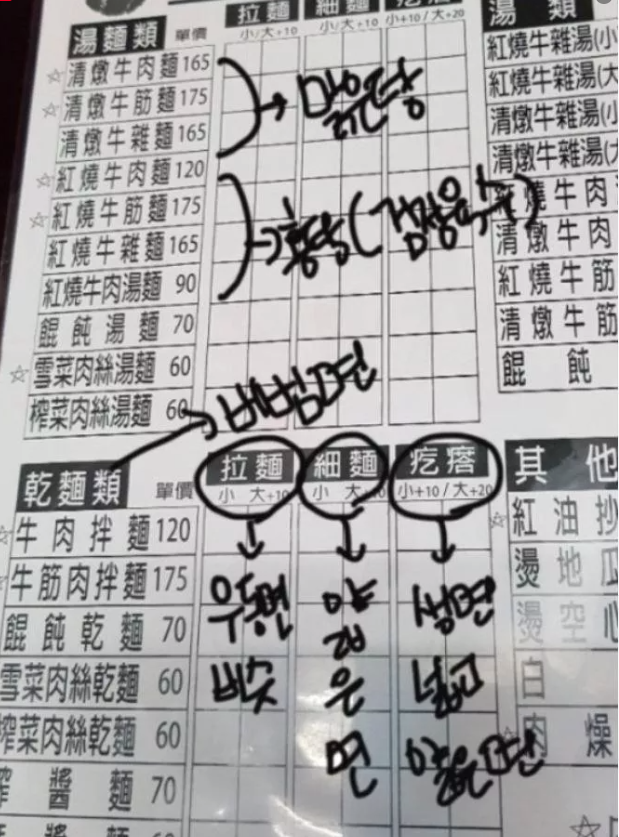 拉麵 細麵 疙瘩
小/大+10 小/大+10 小+10/大+20
湯麵類 單價
☆清燉牛肉麵 165
☆清燉牛筋麵 175
清燉牛雜麵 165
☆紅燒牛肉麵 120
☆紅燒牛筋麵 175
紅燒牛雜麵 165
紅燒牛肉湯麵 90
餛飩湯麵 70
☆雪菜肉絲湯麵 60
榨菜肉絲湯麵 60
맑은탕
홍탕(검정육수)
비빔면
湯類
紅燒牛雜湯(小
紅燒牛雜湯(大
清燉牛雜湯(小
清燉牛雜湯(大
紅燒牛肉
清燉牛肉
紅燒牛筋
清燉牛筋
餛飩
乾麵類 單價
拉麵 細麵 疙瘩
小 大+10 小 大+10 小+10/大+20
☆牛肉拌麵 120
牛筋肉拌麵 175
餛飩乾麵 70
雪菜肉絲乾麵 60
榨菜肉絲乾麵 60
榨醬麵 70
우동면
비슷
얇
은
면
생면
넓고
얇은면
其他
☆紅油抄
燙地瓜
燙空心
白
肉燥